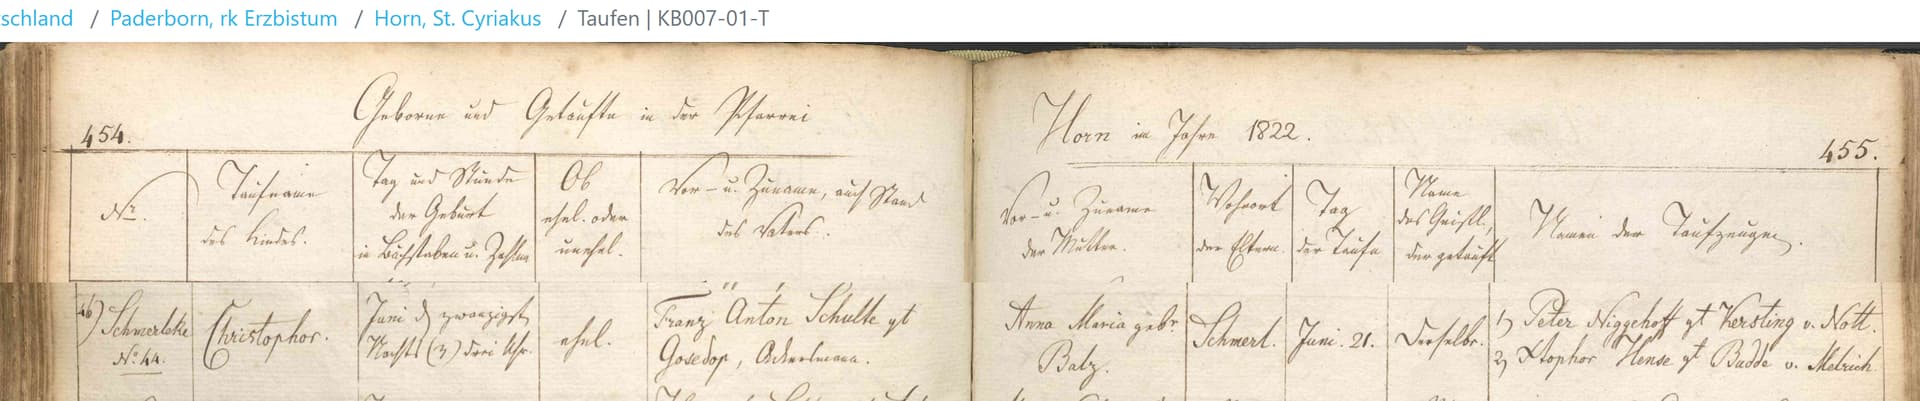 schland / Paderborn, rk Erzbistum / Horn, St. Cyriakus / Taufen | KB007-01-T
454.
Geborne und Getaufte in der Pfarrei
Horn im Jahre 1822.
455.
Nr.
Taufname
des Kindes.
Tag und Stunde
der Geburt
in Buchstaben u. Zahlen
Ob
ehel. oder
unehel.
Vor- u. Zuname, auch Stand
des Vaters.
Vor- u. Zuname
der Mutter.
Wohnort
der Eltern.
Tag
der Taufe
Name
des Geistl.,
der getauft
Namen der Taufzeugen.
46) Schmerleke
No 44.
Christophor.
Juni d zwanzigst
Nachts (3) drei Uhr.
ehel.
Franz Anton Schulte gt
Gosedop, Ackersmann.
Anna Maria gebr
Batz.
Schmerl.
Juni. 21.
Derselbe.
1) Peter Niggehoff gt Kersting v. Nott.
2) Xtophor Hense gt Budde v. Melrich